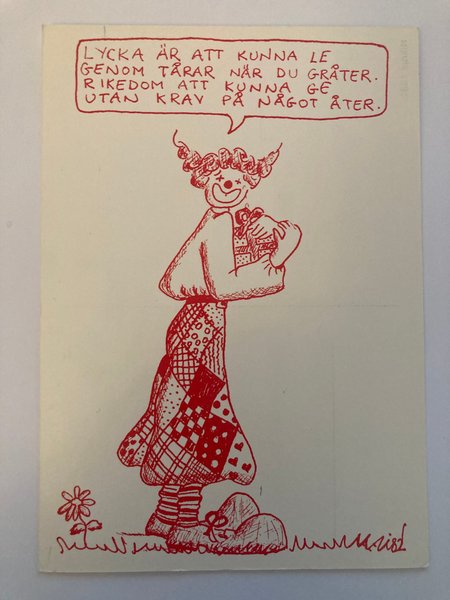 LYCKA ÄR ATT KUNNA LE
GENOM TÅRAR NÄR DU GRÅTER.
RIKEDOM ATT KUNNA GE
UTAN KRAV PÅ NÅGOT ÅTER.